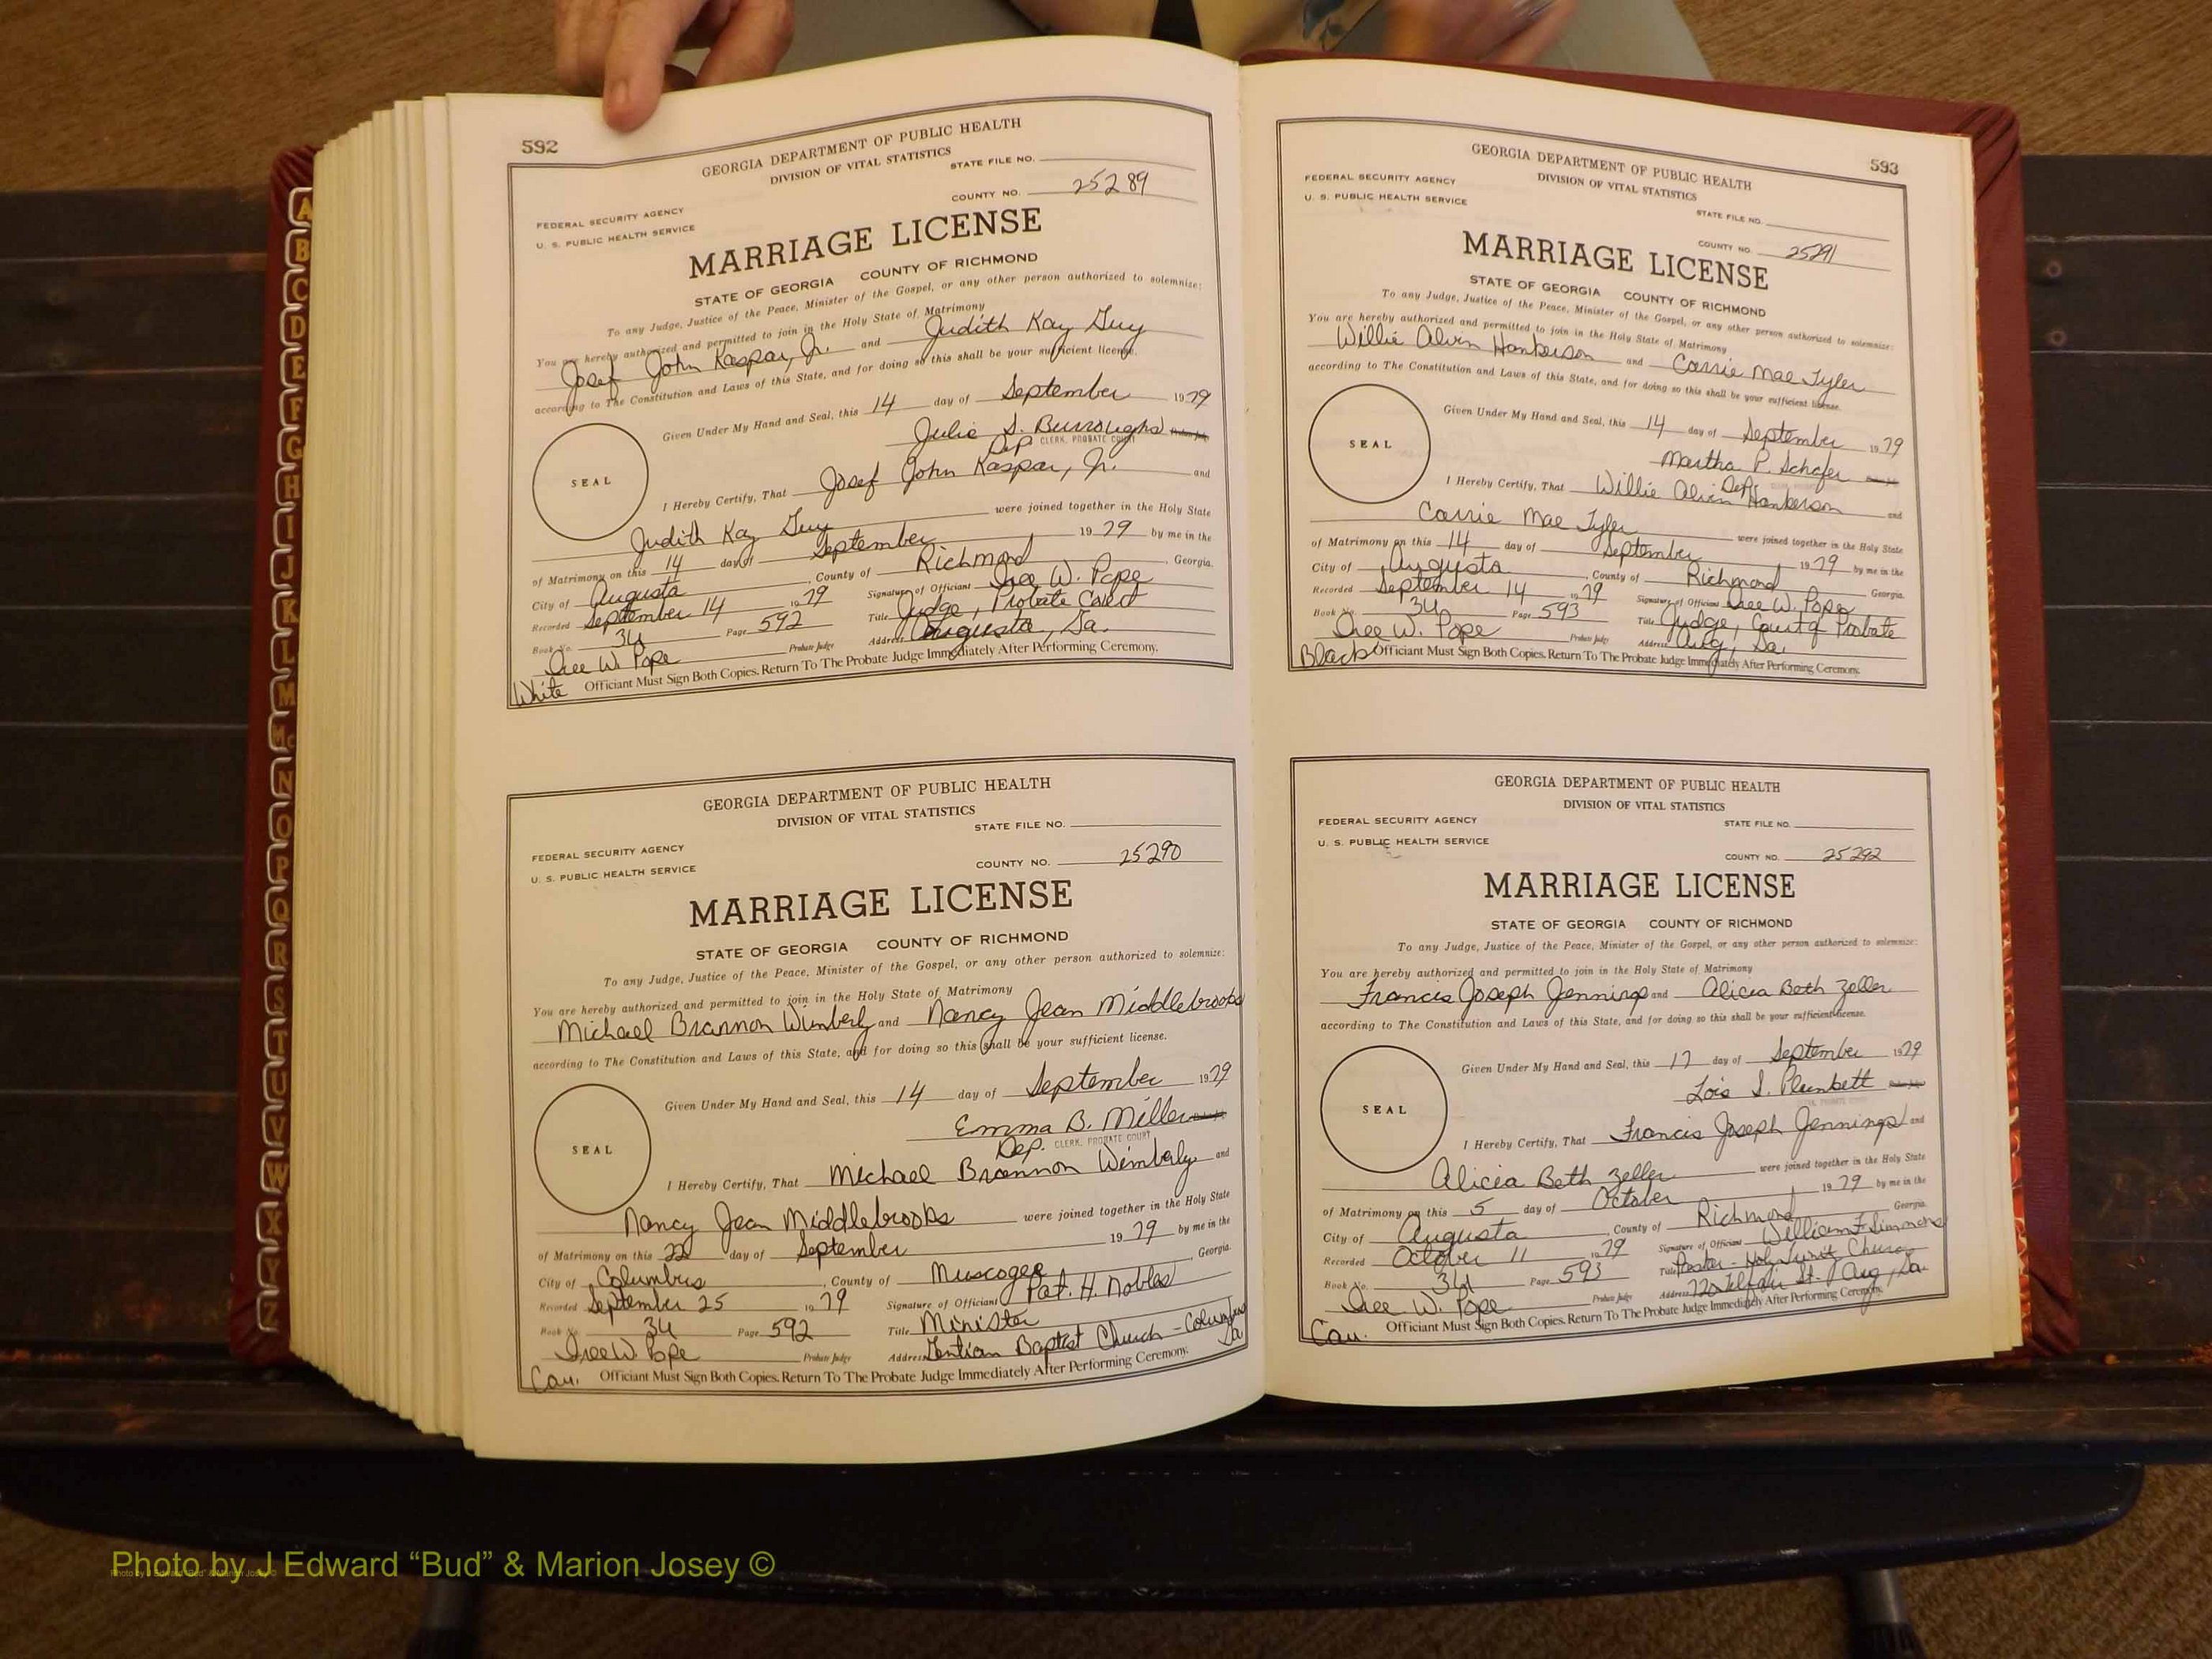 A
B
C
D
E
F
G
H
I
J
K
L
M
Mc
N
O
P
Q
R
S
T
U
V
W
X
Y
Z
592
GEORGIA DEPARTMENT OF PUBLIC HEALTH
DIVISION OF VITAL STATISTICS
STATE FILE NO.
COUNTY NO. 25289
FEDERAL SECURITY AGENCY
U. S. PUBLIC HEALTH SERVICE
MARRIAGE LICENSE
STATE OF GEORGIA COUNTY OF RICHMOND
To any Judge, Justice of the Peace, Minister of the Gospel, or any other person authorized to solemnize:
You are hereby authorized and permitted to join in the Holy State of Matrimony
Josef John Kaspar, Jr. and Judith Kay Guy
according to The Constitution and Laws of this State, and for doing so this shall be your sufficient license.
Given Under My Hand and Seal, this 14 day of September 1979
Julie S. Burroughs Probate Judge
Dep CLERK, PROBATE COURT
SEAL
I Hereby Certify, That Josef John Kaspar, Jr. and
Judith Kay Guy were joined together in the Holy State
of Matrimony on this 14 day of September 1979 by me in the
City of Augusta, County of Richmond, Georgia.
Recorded September 14 1979 Signature of Officiant Iree W. Pope
Book No. 34 Page 592 Title Judge, Probate Court
Iree W. Pope Probate Judge Address Augusta, Ga.
White Officiant Must Sign Both Copies. Return To The Probate Judge Immediately After Performing Ceremony.
GEORGIA DEPARTMENT OF PUBLIC HEALTH
DIVISION OF VITAL STATISTICS
STATE FILE NO.
FEDERAL SECURITY AGENCY
U. S. PUBLIC HEALTH SERVICE
COUNTY NO. 25290
MARRIAGE LICENSE
STATE OF GEORGIA COUNTY OF RICHMOND
To any Judge, Justice of the Peace, Minister of the Gospel, or any other person authorized to solemnize:
You are hereby authorized and permitted to join in the Holy State of Matrimony
Michael Brannon Wimberly and Nancy Jean Middlebrooks
according to The Constitution and Laws of this State, and for doing so this shall be your sufficient license.
Given Under My Hand and Seal, this 14 day of September 1979
Emma B. Miller Probate Judge
Dep. CLERK, PROBATE COURT
SEAL
I Hereby Certify, That Michael Brannon Wimberly and
Nancy Jean Middlebrooks were joined together in the Holy State
of Matrimony on this 22 day of September 1979 by me in the
City of Columbus, County of Muscogee, Georgia.
Recorded September 25 1979 Signature of Officiant Pat. H. Nobles
Book No. 34 Page 592 Title Minister
Iree W. Pope Probate Judge Address Baptist Church - Columbus Ga
Cau. Officiant Must Sign Both Copies. Return To The Probate Judge Immediately After Performing Ceremony.
593
GEORGIA DEPARTMENT OF PUBLIC HEALTH
DIVISION OF VITAL STATISTICS
FEDERAL SECURITY AGENCY
U. S. PUBLIC HEALTH SERVICE
STATE FILE NO.
COUNTY NO. 25291
MARRIAGE LICENSE
STATE OF GEORGIA COUNTY OF RICHMOND
To any Judge, Justice of the Peace, Minister of the Gospel, or any other person authorized to solemnize:
You are hereby authorized and permitted to join in the Holy State of Matrimony
Willie Alvin Hankerson and Carrie Mae Tyler
according to The Constitution and Laws of this State, and for doing so this shall be your sufficient license.
Given Under My Hand and Seal, this 14 day of September 1979
Martha P. Schafer
Dep
SEAL
I Hereby Certify, That Willie Alvin Hankerson and
Carrie Mae Tyler were joined together in the Holy State
of Matrimony on this 14 day of September 1979 by me in the
City of Augusta, County of Richmond Georgia.
Recorded September 14 1979 Signature of Officiant Iree W. Pope
Book No. 34 Page 593 Title Judge, Court of Probate
Iree W. Pope Probate Judge Address Aug, Ga.
Black Officiant Must Sign Both Copies. Return To The Probate Judge Immediately After Performing Ceremony.
GEORGIA DEPARTMENT OF PUBLIC HEALTH
DIVISION OF VITAL STATISTICS
FEDERAL SECURITY AGENCY
STATE FILE NO.
U. S. PUBLIC HEALTH SERVICE
COUNTY NO. 25292
MARRIAGE LICENSE
STATE OF GEORGIA COUNTY OF RICHMOND
To any Judge, Justice of the Peace, Minister of the Gospel, or any other person authorized to solemnize:
You are hereby authorized and permitted to join in the Holy State of Matrimony
Francis Joseph Jennings and Alicia Beth Zeller
according to The Constitution and Laws of this State, and for doing so this shall be your sufficient license.
Given Under My Hand and Seal, this 17 day of September 1979
Lois S. Plunkett
SEAL
I Hereby Certify, That Francis Joseph Jennings and
Alicia Beth Zeller were joined together in the Holy State
of Matrimony on this 5 day of October 1979 by me in the
City of Augusta, County of Richmond Georgia.
Recorded October 11 1979 Signature of Officiant William F. Simmons
Book No. 34 Page 593 Title Pastor - Holy Trinity Church
Iree W. Pope Probate Judge Address 720 Telfair St. Aug, Ga.
Cau. Officiant Must Sign Both Copies. Return To The Probate Judge Immediately After Performing Ceremony.
Photo by J Edward “Bud” & Marion Josey ©
Photo by J Edward "Bud" & Marion Josey ©